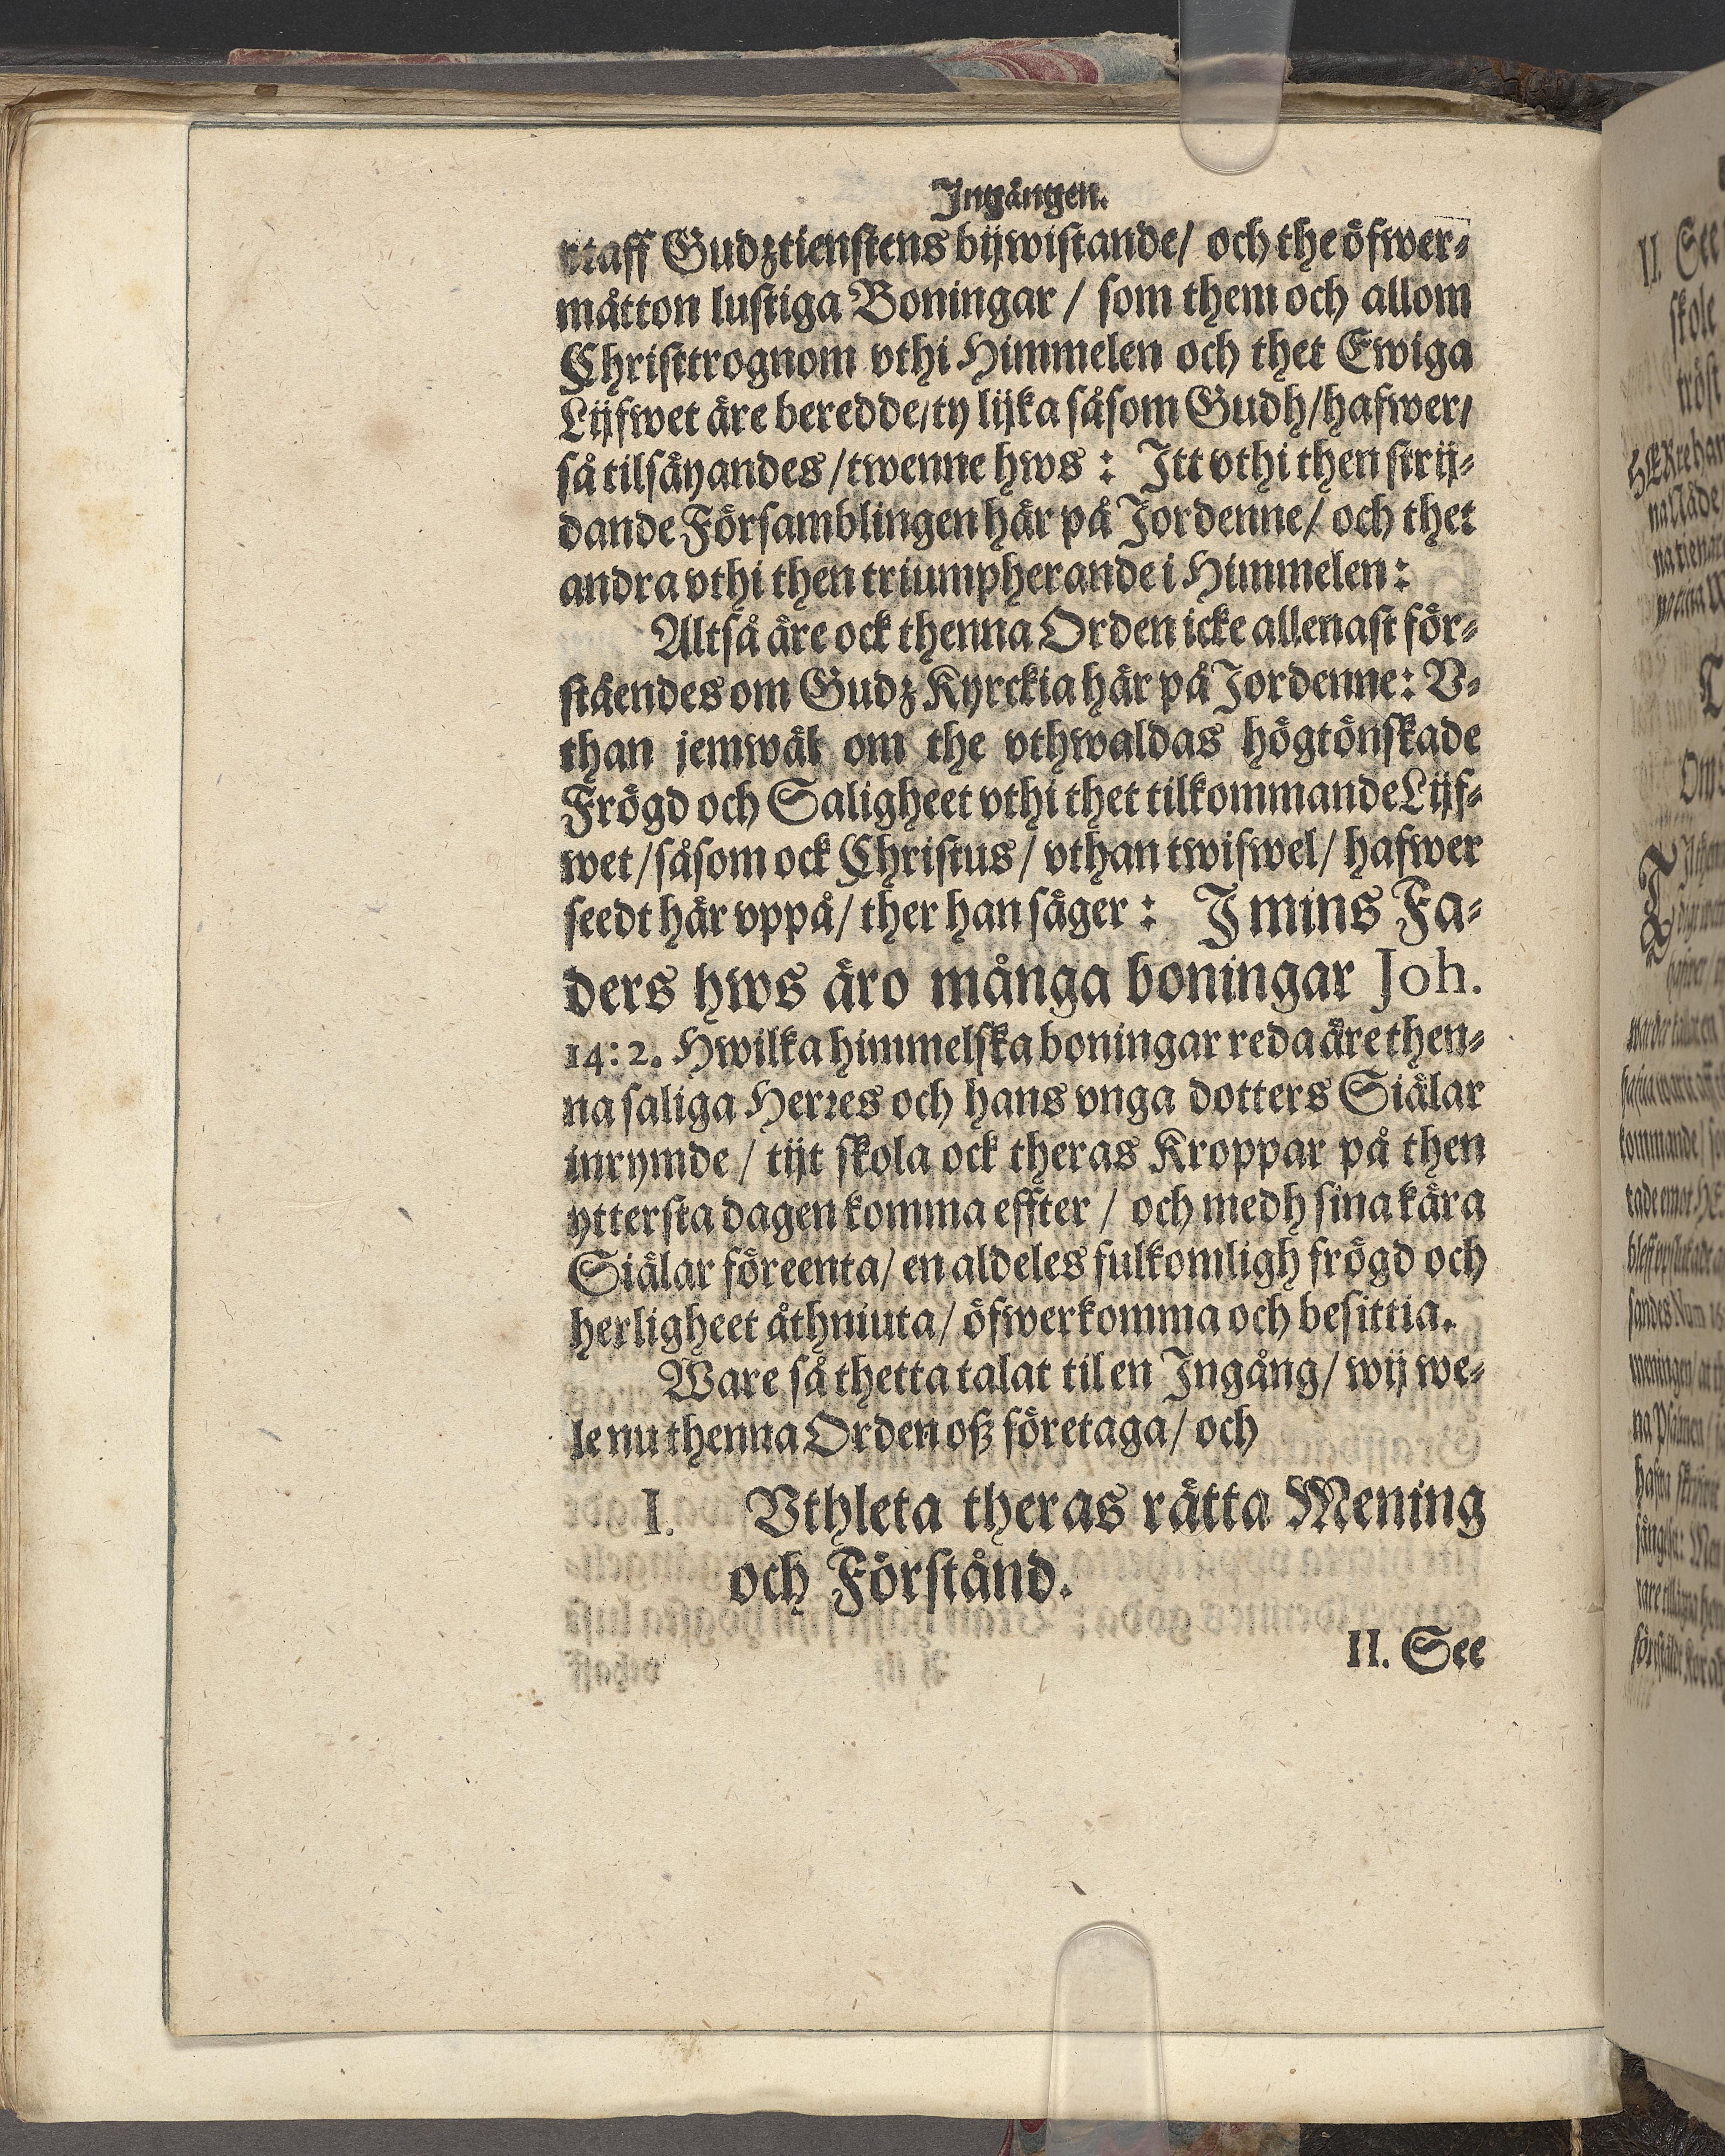 Ingången.
vtaff Gudztienstens bijwistande/ och the öfwer-
måtton lustiga Boningar / som them och allom
Christtrognom vthi Himmelen och thet Ewiga
Lijfwet äre beredde/ty lijka såsom Gudh/hafwer/
så tilsäyandes/twenne hws : Itt vthi then strij-
dande Församblingen här på Jordenne/ och thet
andra vthi then triumpherande i Himmelen:
Altså äre ock thenna Orden icke allenast för-
ståendes om Gudz Kyrckia här på Jordenne: V-
than jemwäl om the vthwaldas högtönskade
Frögd och Saligheet vthi thet tilkommande Lijf-
wet/såsom ock Christus/ vthan twifwel/ hafwer
seedt här vppå/ ther han säger : I mins Fa-
ders hws äro många boningar Joh.
14: 2. Hwilka himmelska boningar reda äre then-
na saliga Herres och hans vnga dotters Siälar
inrymde / tijt skola ock theras Kroppar på then
yttersta dagen komma effter / och medh sina kära
Siälar föreenta/ en aldeles fulkomligh frögd och
herligheet åthniuta/ öfwerkomma och besittia.
Ware så thetta talat til en Ingång/ wij we-
le nu thenna Orden oß företaga/ och
I. Vthleta theras rätta Mening
och Förstånd.
II. See
II. See
skole
tröst